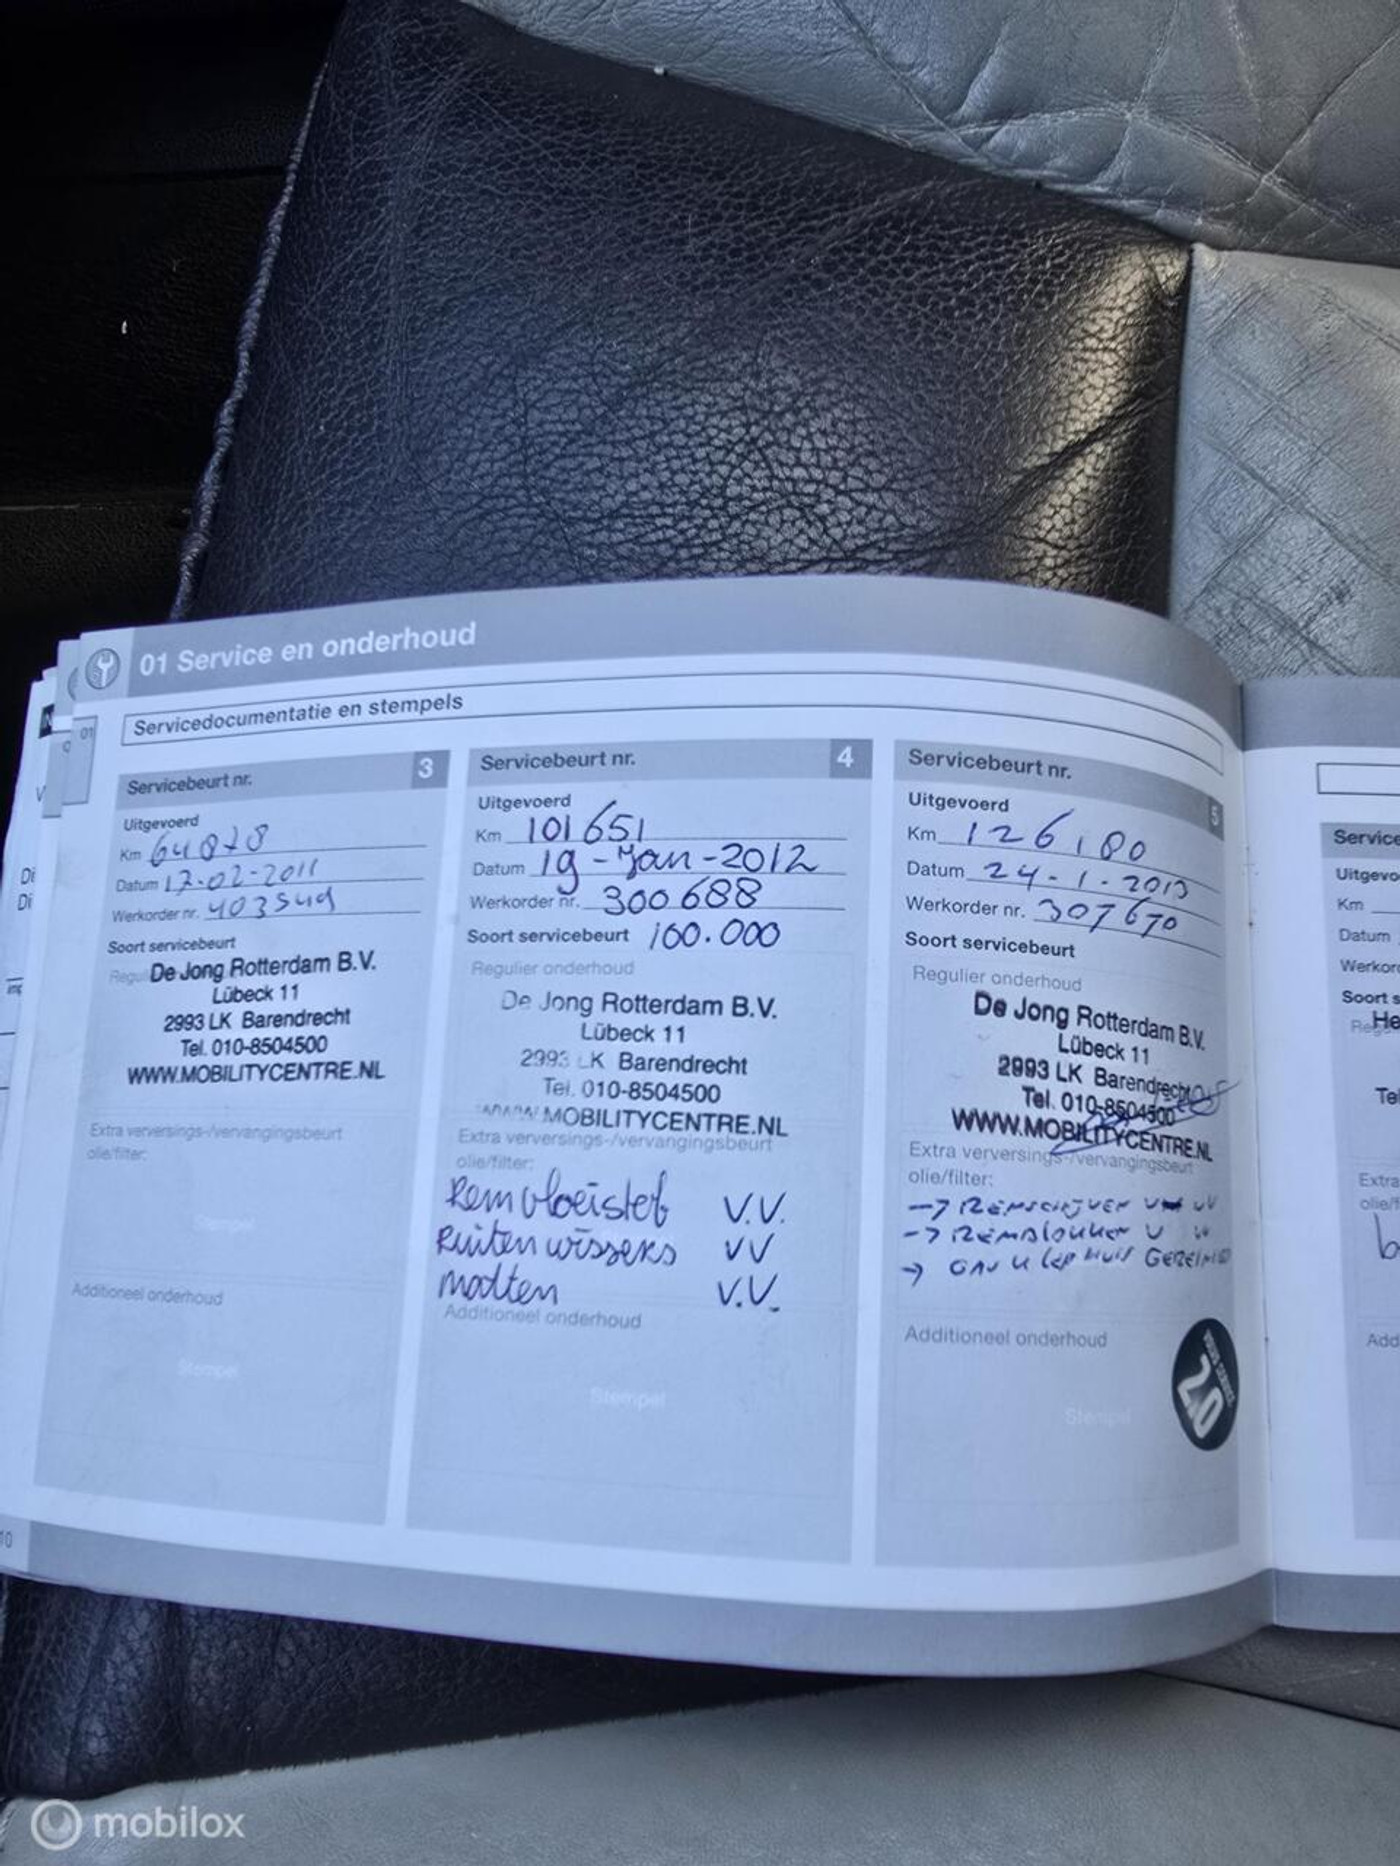 01 Service en onderhoud
01
Servicedocumentatie en stempels
Servicebeurt nr. 3
Uitgevoerd
Km 64878
Datum 17-02-2011
Werkorder nr. 403549
Soort servicebeurt
De Jong Rotterdam B.V.
Lübeck 11
2993 LK Barendrecht
Tel. 010-8504500
WWW.MOBILITYCENTRE.NL
Extra verversings-/vervangingsbeurt
olie/filter:
Stempel
Additioneel onderhoud
Stempel
10
Servicebeurt nr. 4
Uitgevoerd
Km 101651
Datum 19-Jan-2012
Werkorder nr. 300688
Soort servicebeurt 100.000
Regulier onderhoud
De Jong Rotterdam B.V.
Lübeck 11
2993 LK Barendrecht
Tel. 010-8504500
WWW.MOBILITYCENTRE.NL
Extra verversings-/vervangingsbeurt
olie/filter:
Remvloeistof V.V.
Ruitenwissers VV
matten V.V.
Additioneel onderhoud
Stempel
Servicebeurt nr. 5
Uitgevoerd
Km 126180
Datum 24-1-2013
Werkorder nr. 307670
Soort servicebeurt
Regulier onderhoud
De Jong Rotterdam B.V.
Lübeck 11
2993 LK Barendrecht
Tel. 010-8504500
WWW.MOBILITYCENTRE.NL
Extra verversings-/vervangingsbeurt
olie/filter:
→ REMSCHIJVEN VV
→ REMBLOKKEN V V
→ GASKLEPHUIS GEREINIGD
Additioneel onderhoud
Stempel
VOLVO SERVICE
2.0
Service
Km
Datum
Soort s
He
Tel
Extra
mobilox